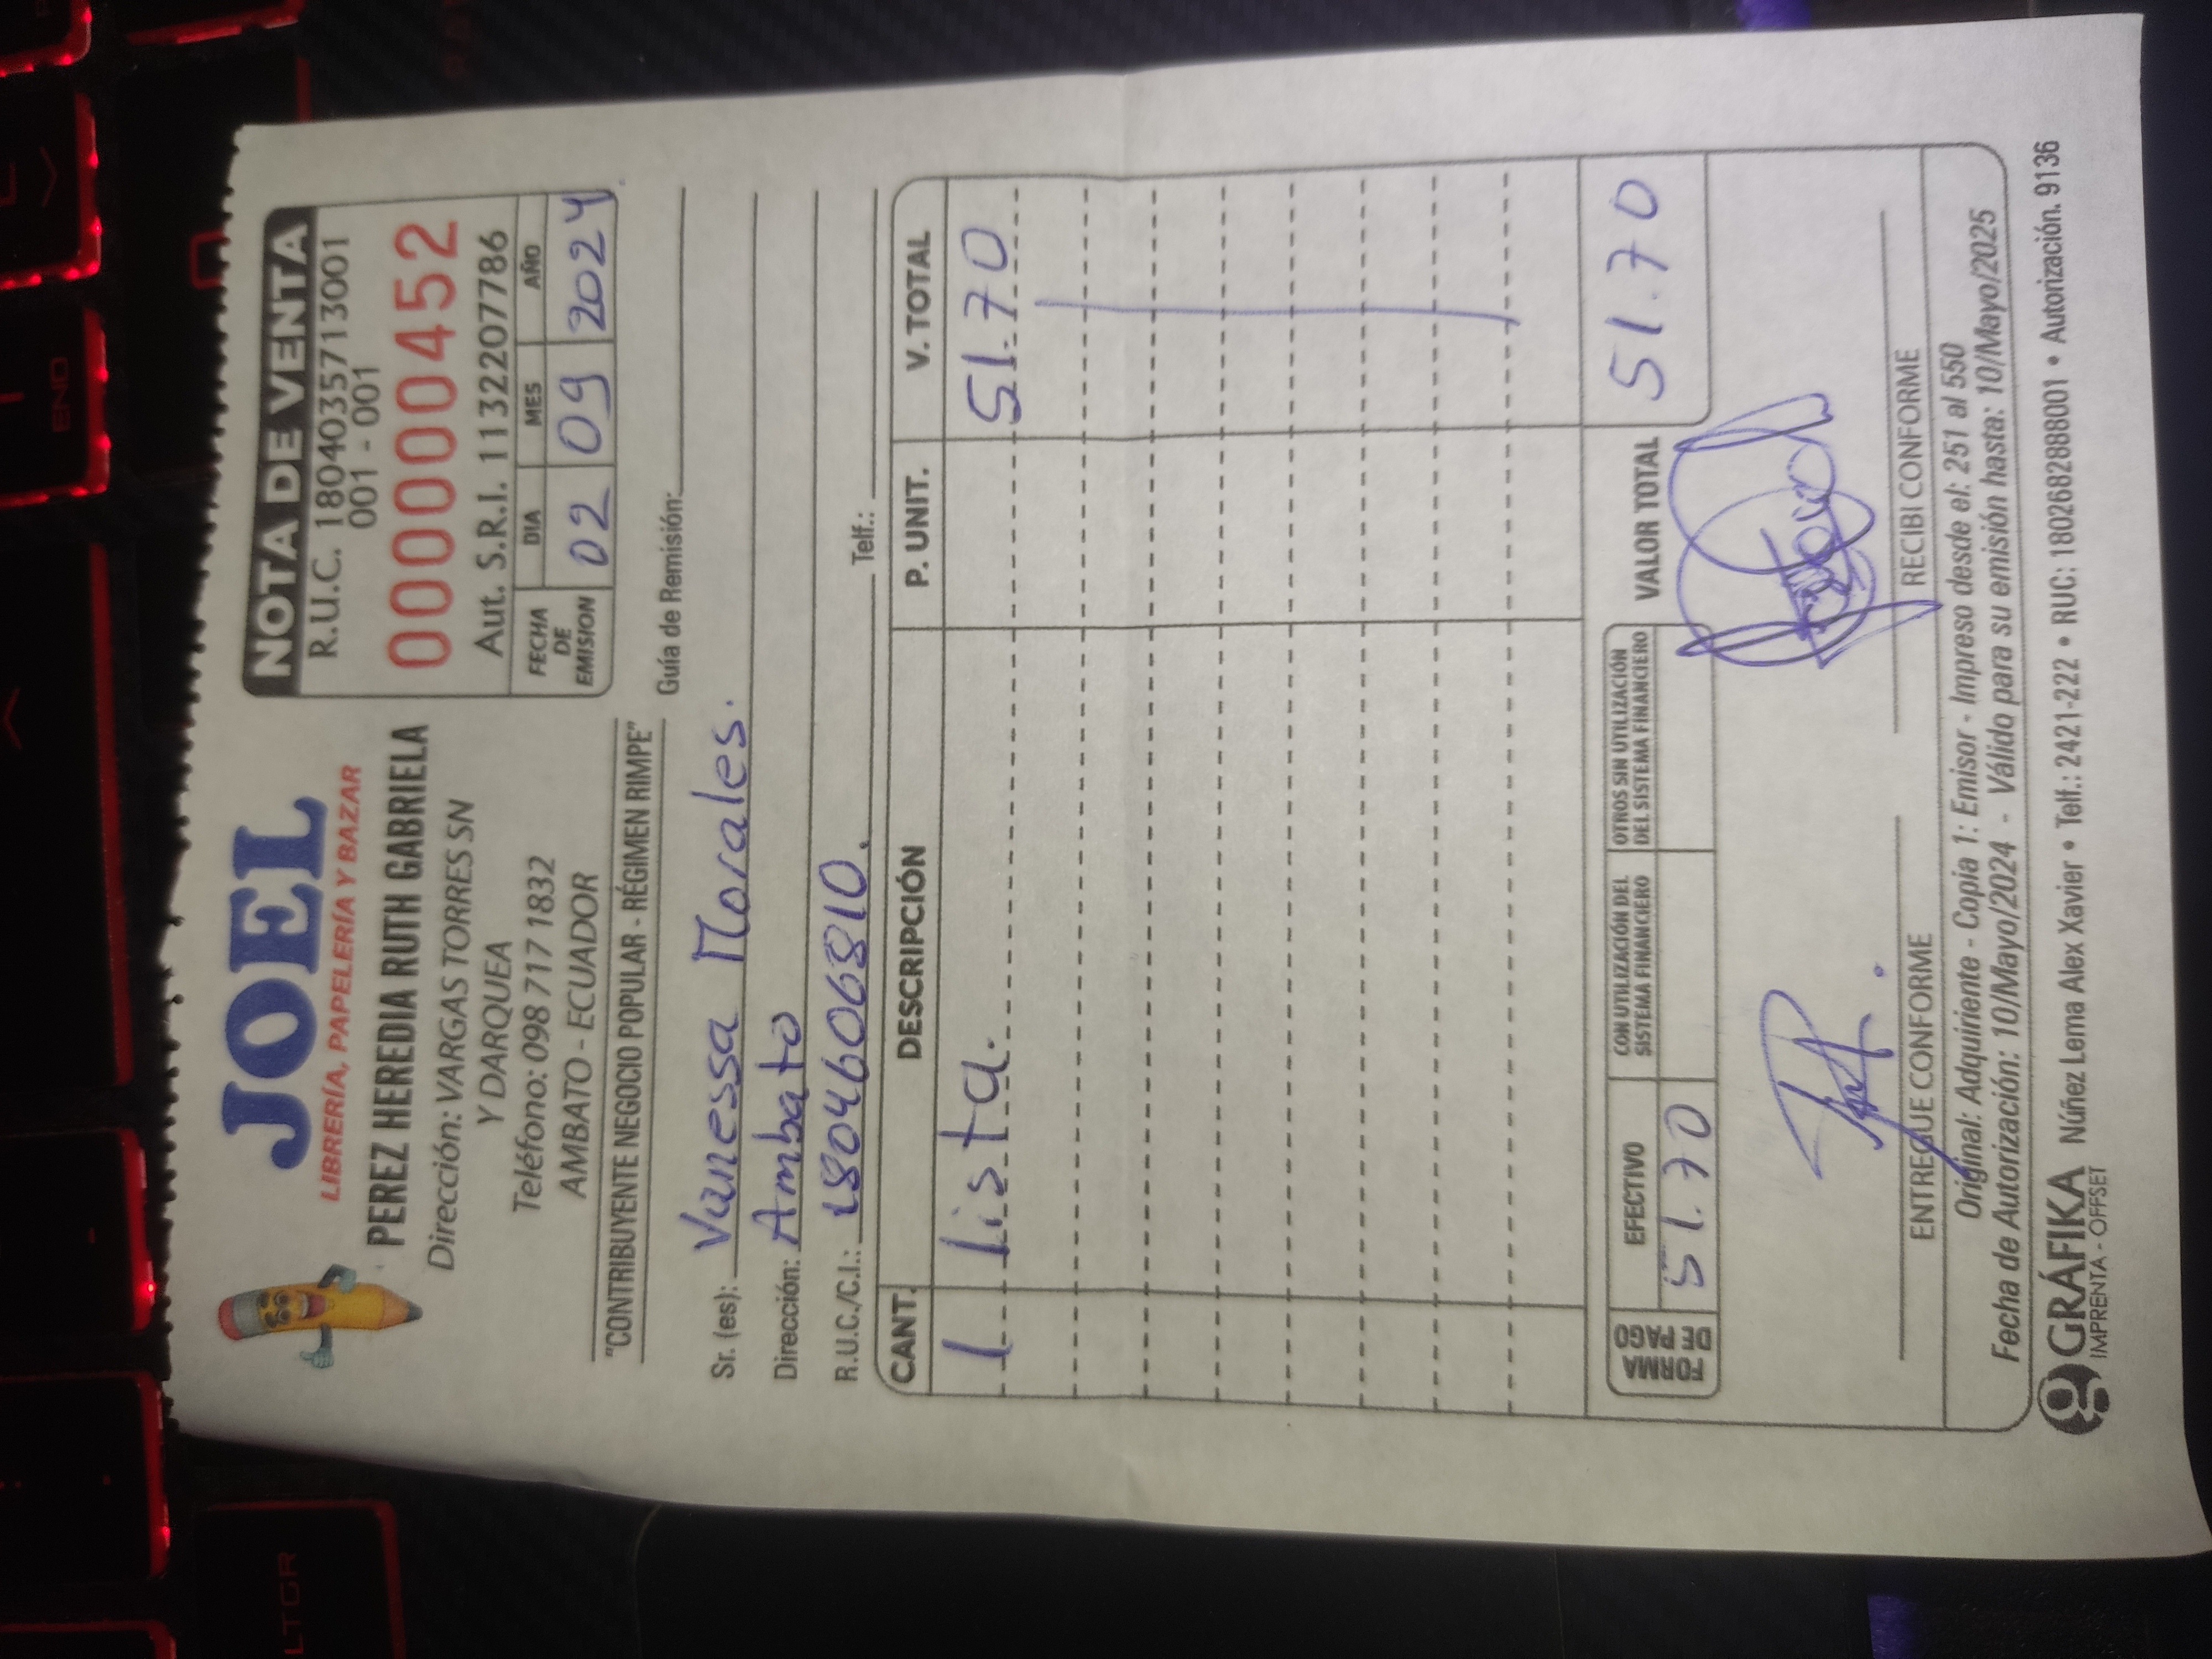 JOEL
LIBRERÍA, PAPELERÍA Y BAZAR
PEREZ HEREDIA RUTH GABRIELA
Dirección: VARGAS TORRES SN
Y DARQUEA
Teléfono: 098 717 1832
AMBATO - ECUADOR
"CONTRIBUYENTE NEGOCIO POPULAR - RÉGIMEN RIMPE"
NOTA DE VENTA
R.U.C. 1804035713001
001 - 001
000000452
Aut. S.R.I. 1132207786
FECHA DE EMISION DIA MES AÑO
02 09 2024
Guía de Remisión:
Sr. (es): Vanessa Morales.
Dirección: Ambato
R.U.C./C.I.: 1804606810. Telf.:
CANT. DESCRIPCIÓN P. UNIT. V. TOTAL
1 lista. 51.70
FORMA DE PAGO
EFECTIVO
51.70
CON UTILIZACIÓN DEL
SISTEMA FINANCIERO
OTROS SIN UTILIZACIÓN
DEL SISTEMA FINANCIERO
VALOR TOTAL 51.70
ENTREGUE CONFORME RECIBI CONFORME
Original: Adquiriente - Copia 1: Emisor - Impreso desde el: 251 al 550
Fecha de Autorización: 10/Mayo/2024 - Válido para su emisión hasta: 10/Mayo/2025
g GRÁFIKA
IMPRENTA - OFFSET
Núñez Lema Alex Xavier • Telf.: 2421-222 • RUC: 1802682888001 • Autorización. 9136
LTGR
END